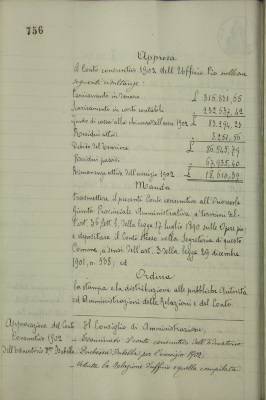 756
Approva
il Conto consuntivo 1902 dell'Ufficio Pio nelle
seguenti risultanze:
Caricamento in denaro £ 316.831,65
Scaricamento in carte contabili " 232.637,42
Fondo di cassa alla chiusura dell'eserc. 1902 £ 83.294,23
Residui attivi
Debito del Tesoriere £ 86.545,79
Residui passivi " 67.935,40
Rimanenza attiva dell'esercizio 1902 £ 18.610,39
Manda
trasmettere il presente Conto consuntivo all'Onorevole
Giunta Provinciale Amministrativa, a termini del-
l'art. 36 lett. b, della legge 17 luglio 1890 sulle Opere pie,
e depositare il Conto stesso nella Segreteria di questo
Comune, a sensi dell'art. 3 della legge 29 dicembre
1901, n. 538; ed
Ordina
la stampa e la distribuzione alle pubbliche Autorità
ed Amministrazioni della Relazione e del Conto.
Approvazione del Conto
Consuntivo 1902
dell'Educatorio Duch.ssa Isabella.
Il Consiglio di Amministrazione,
Esaminato il conto consuntivo dell'Educatorio
Duchessa Isabella, per l'esercizio 1902.
Udita la Relazione d'ufficio a quello compilata